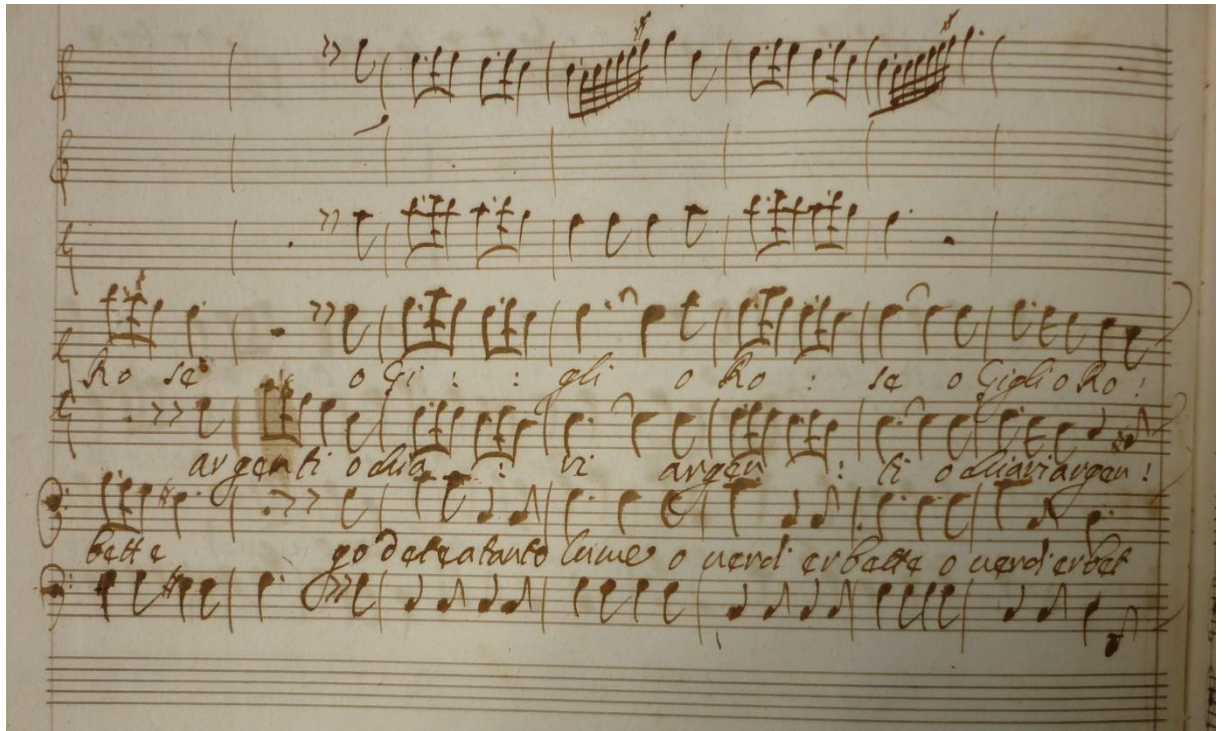 Ro se o Gi : : gli o Ro : se o Giglio Ro :
argenti o chia : ri argen : ti o chiari argen :
bette godete a tanto lume o verdi erbette o verdi erbet